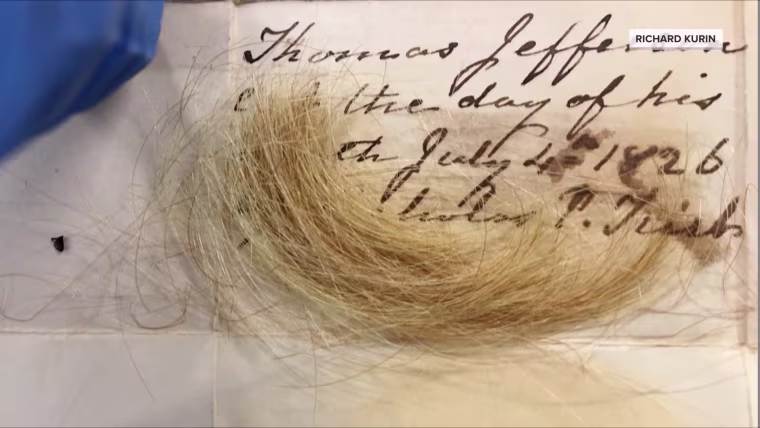 RICHARD KURIN
Thomas Jefferson
the day of his
th July 4th 1826
P. Trist